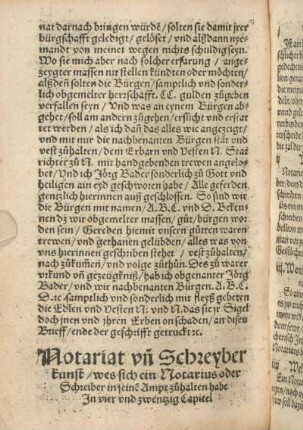 nat darnach bringen würdẽ / solten sie damit jrer
bürgschafft geledigt / gelöst / und alßdann nye-
mandt von meinet wegen nichts schuldig seyn.
Wo sie mich aber nach solcher erfarung / ange-
zeygter massen nit stellen kündten oder möchten /
alßdeñ solten die Bürgen / samptlich vnd sonder-
lich obgemelter herrschafft. CC. gulden zůgeben
verfallen seyn / Vnd was an eynem Bürgen ab-
gehet / soll am andern zůgehen / ersůcht vnd erstat
tet werden / als ich dañ das alles wie angezeigt /
vnd mit mir die nachbenanten Bürgen stät vnd
vest zůhalten / dem Erbarn vnd Vesten N. Stat
richter zů N. mit handgebenden trewen angelo-
bet / Vnd ich Jörg Bader sonderlich zů Gott vnd
heiligen ain eyd geschworen habe / Alle geferden
gentzlich hierinnen auß geschlossen. So sind wir
die Bürgen mit namen / A. B. C. vnd D. Beken-
nen dz wir obgemelter massen / gůt / bürgen wor
den sein / Gereden hiemit vnsern gůten waren
trewen / vnd gethanen gelübden / alles was von
vns hierinnen geschriben stehet / vest zůhalten /
nach zůkumen / vnd volge zůthůn. Des zů warer
vrkund vñ gezeügkniß / hab ich obgenanter Jörg
Bader / vnd wir nachbenanten Bürgen. A. B. C.
D. ꝛc. samptlich vnd sonderlich mit fleyß gebeten
die Edlen vnd Vesten N. vnd N. das sie jr Sigel
doch jnen vnd jhren Erben on schaden / an disen
Brieff / ende der geschrifft getruckt ꝛc.
Notariat vñ Schreyber
kunst / wes sich ein Notarius oder
Schreiber in seinẽ Ampt zůhalten habe
In vier vnd zwentzig Capitel